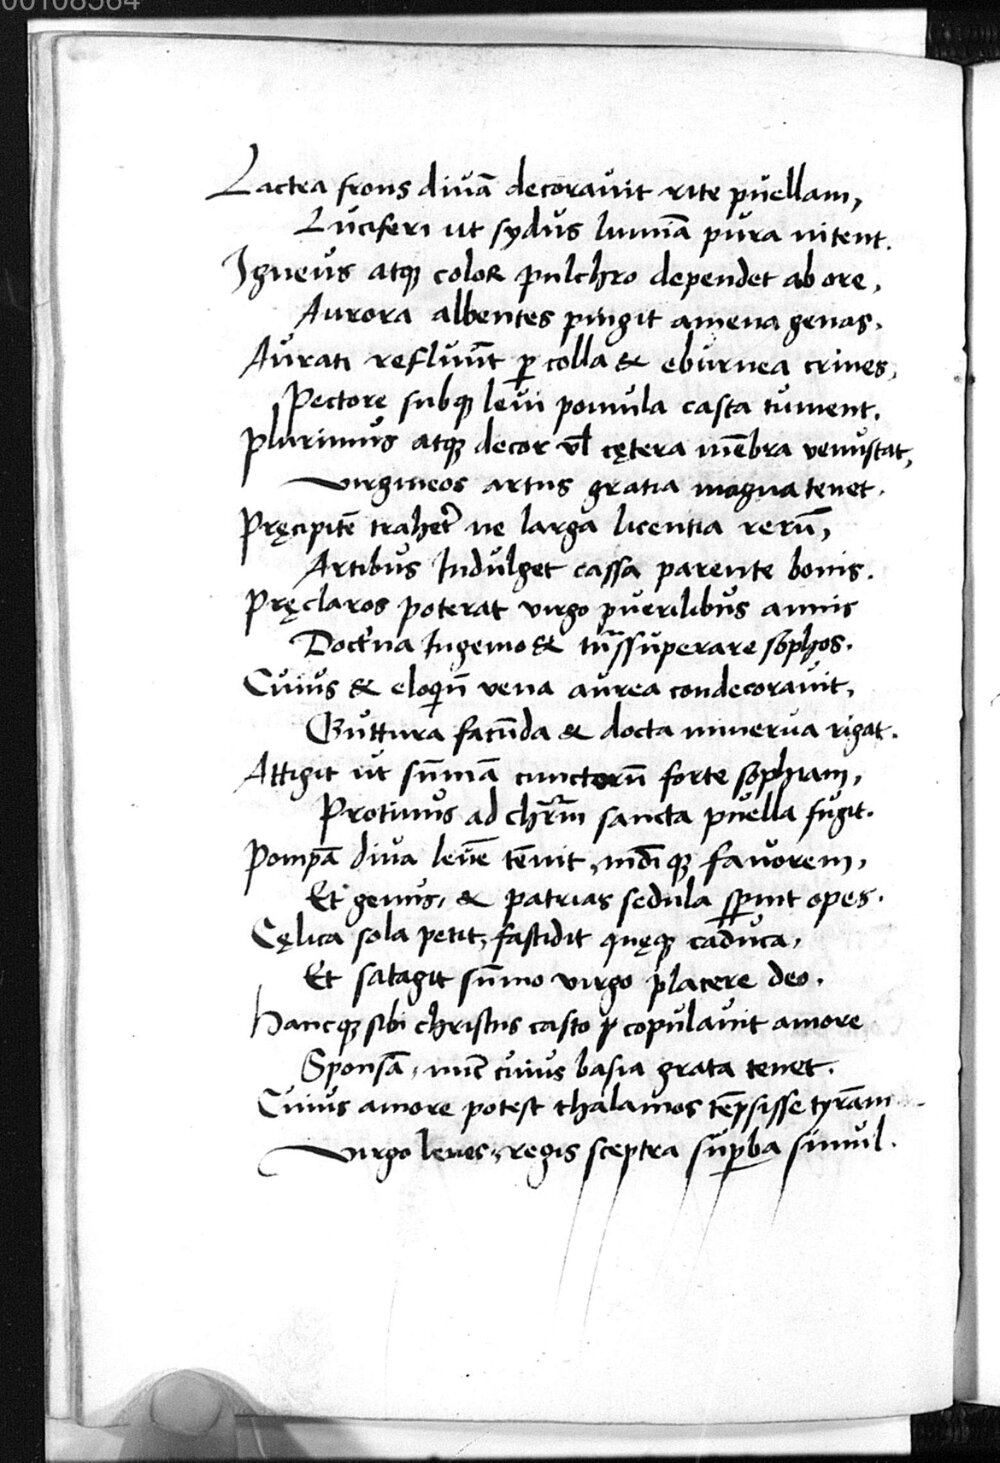 00108564
Lactea frons divā decoravit rite puellam,
Luciferi ut sydus lumīa pura nitent.
Igneus atq3 color pulchro dependet ab ore,
Aurora albentes pingit amena genas.
Aurati refluūt ꝑ colla & eburnea crines,
Pectore subq3 levi pomula casta tument.
Plurimus atq3 decor vl̄ cętera mēbra venustat,
Virgineos artus gratia magna tenet.
Pręcipitē traheret̄ ne larga licentia rerū,
Artibus Indulget cassa parente bonis.
Pręclaros poterat virgo puerilibus annis
Doctͥna Ingenio & tu͞ssuperare sophos.
Cuius & eloqiū vena aurea condecoravit,
Guttura facūda & docta minerva rigat.
Attigit ut sūmā cunctorū forte sophiam,
Protinus ad chr̄m sancta puella fugit.
Pompā diva levē tēnit, mūdiq3 favorem,
Et genus, & patrias sedula sꝑnit opes.
Cęlica sola petit, fastidit quęq3 caduca,
Et satagit sūmo virgo placere deo.
Hancq3 sibi christus casto ꝓ copulavit amore
Sponsā, nūc cuius basia grata tenet.
Cuius amore potest thalamos tēpsisse tyrām
Virgo leves, regis sceptra suꝑba simul.